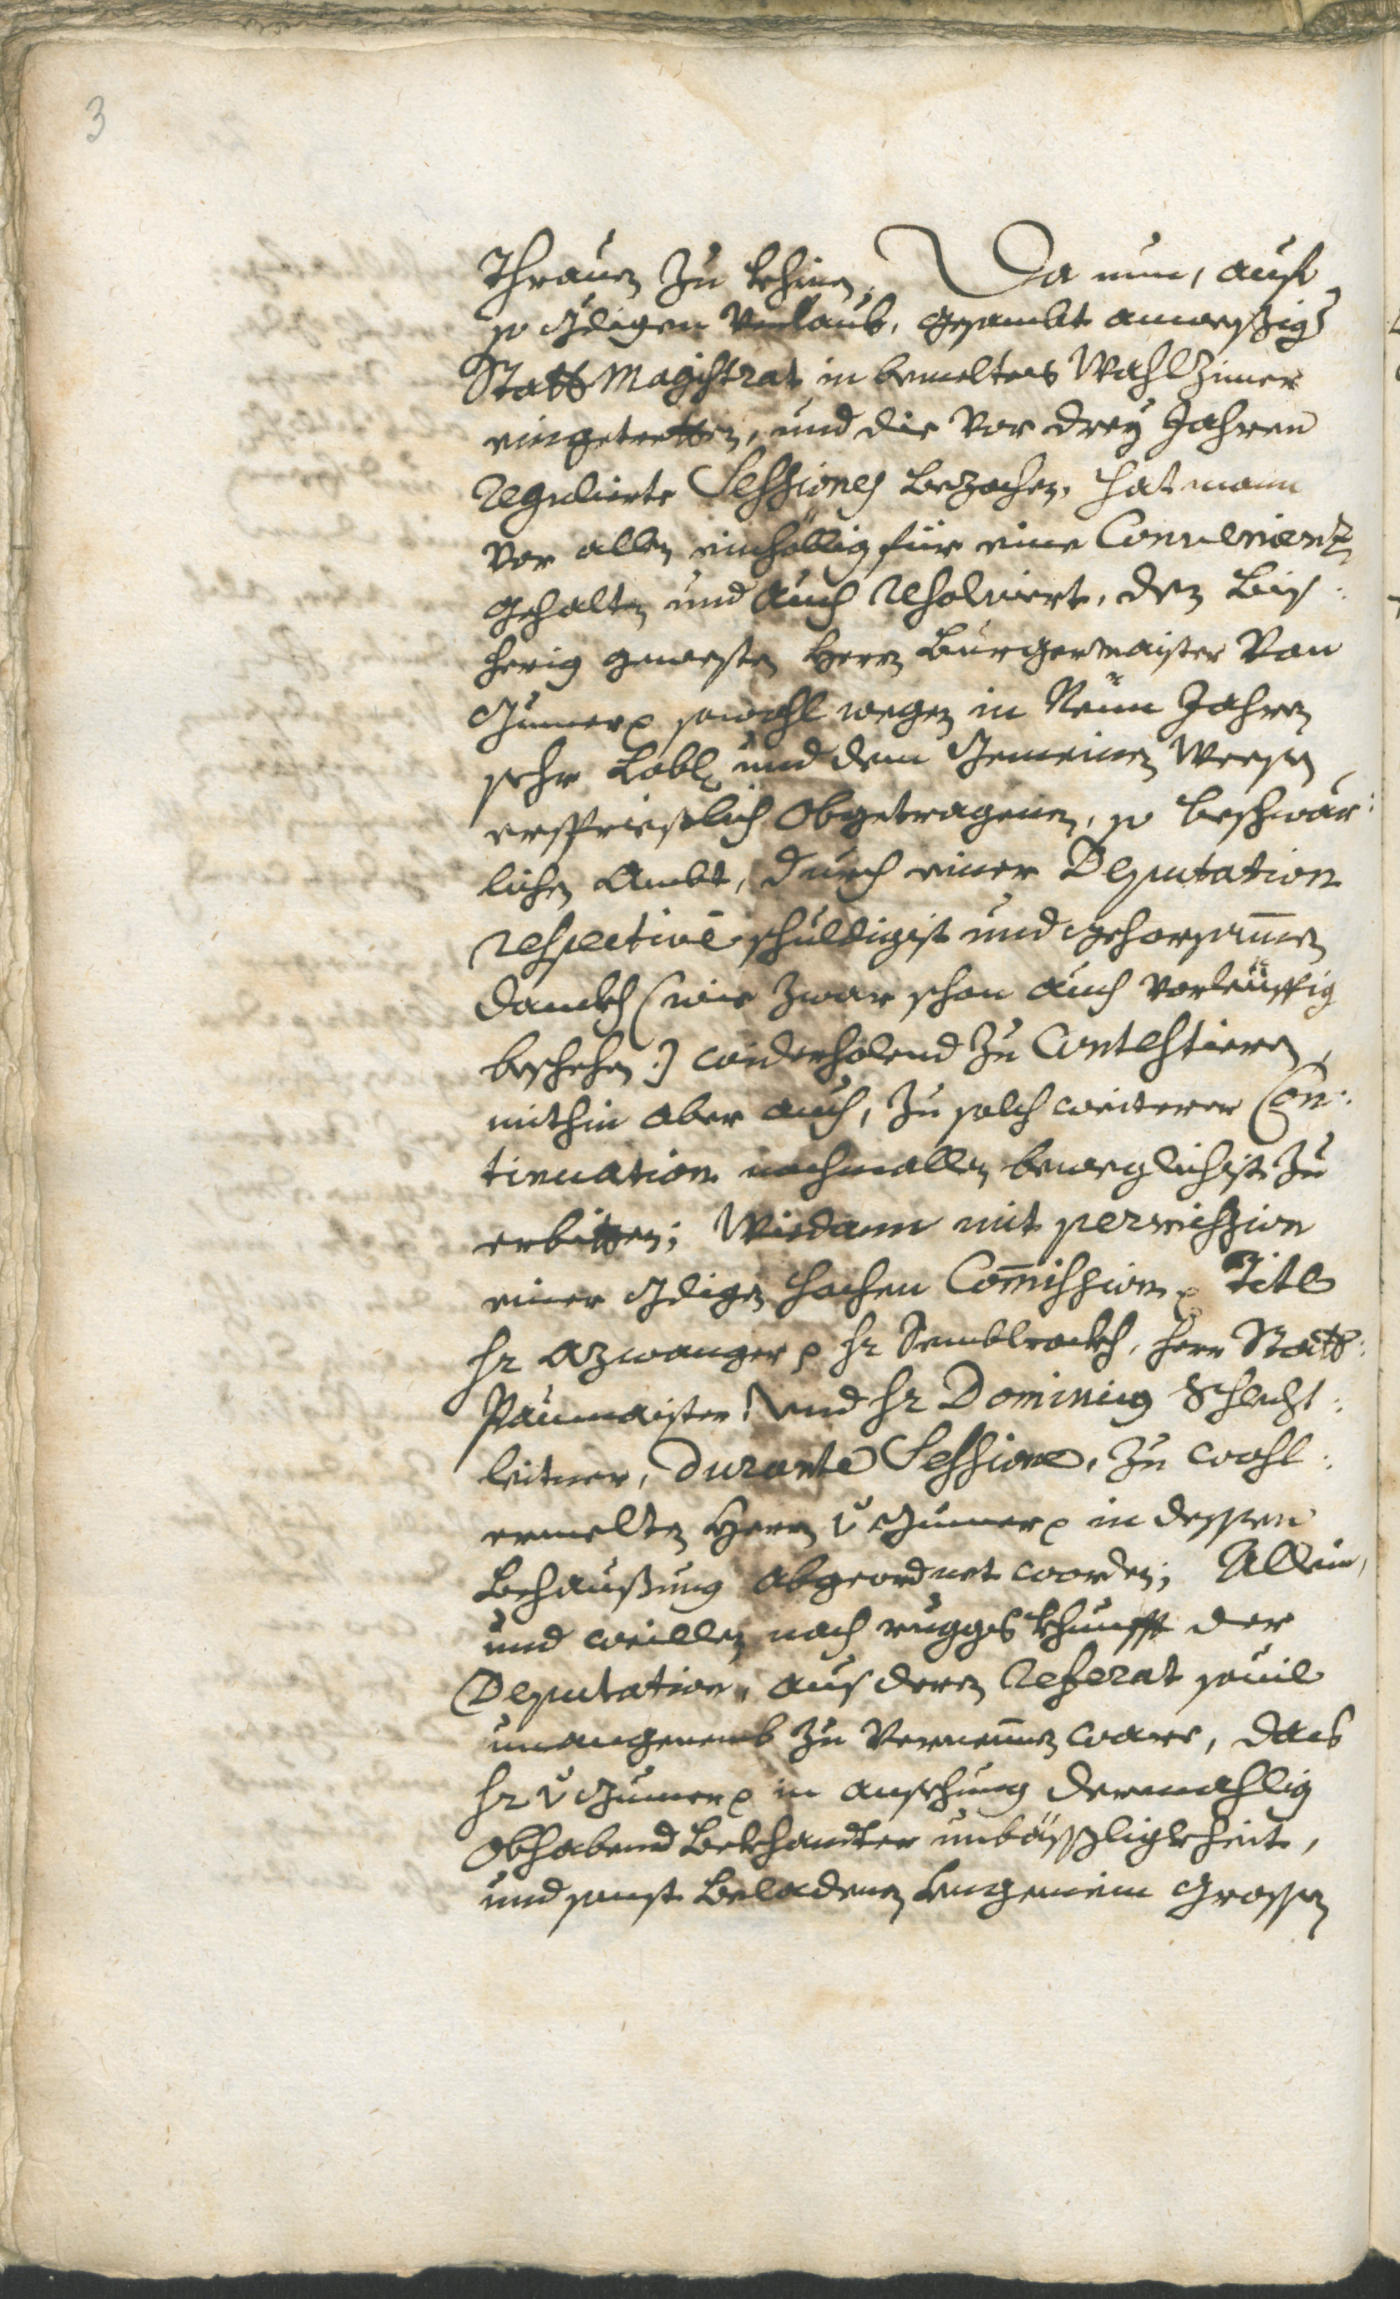 3
Thrauen zu khinen. Da nun, auf
so gdigen Verlaub, gesambt anweßige
Statt Magistrat in bemeltes Wahlzimer
eingetretten, und die vor drey Jahren
regulierte Sessiones bezochen, hat mann
vor allen einhöllig für eine Convenienz
gehalten und auch resolviert, den bis:
herig gewesten Herrn Burgermaister Von
Gumer p sowohl wegen in Neün Jahren
sehr Lobl. und dem Gemeinen Weesen
ersprießlich obgetragenen, so beschwär:
lichen Ambt, durch einer Deputation
respective schuldigist und gehorsammen
Danckh (wie zwar schon auch vorleüffig
beschehen:) widerholend zu Contestieren,
mithin aber auch, zu solch weiterer Con:
tinuation nochmallen beweglichist zu
erbitten; Wiedann mit permission
einer gdigen hochen Commission p Titl
Hr Azwanger p Hr Semblrockh, Herr Statt:
Paumaister und Hr Dominicus Schlecht:
leitner, durante Sessione, zu wohl:
ermelten Herrn v Gumer p in dessen
Behaußung abgeordnet worden; Allein,
und weillen nach ruggs khunfft der
Deputation, aus deren Referat sovil
unangenemb zu Vernemmen ware, das
Hr v Gumer p in ansehung dermahlig
obhabend bekhandter unbäßligkheit,
und sonst beladenen Grossen